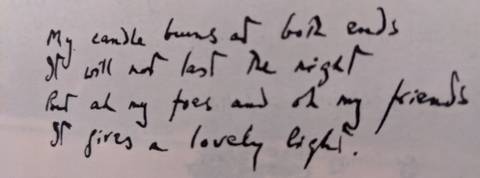 My candle burns at both ends
It will not last the night
But ah my foes and oh my friends
It gives a lovely light.